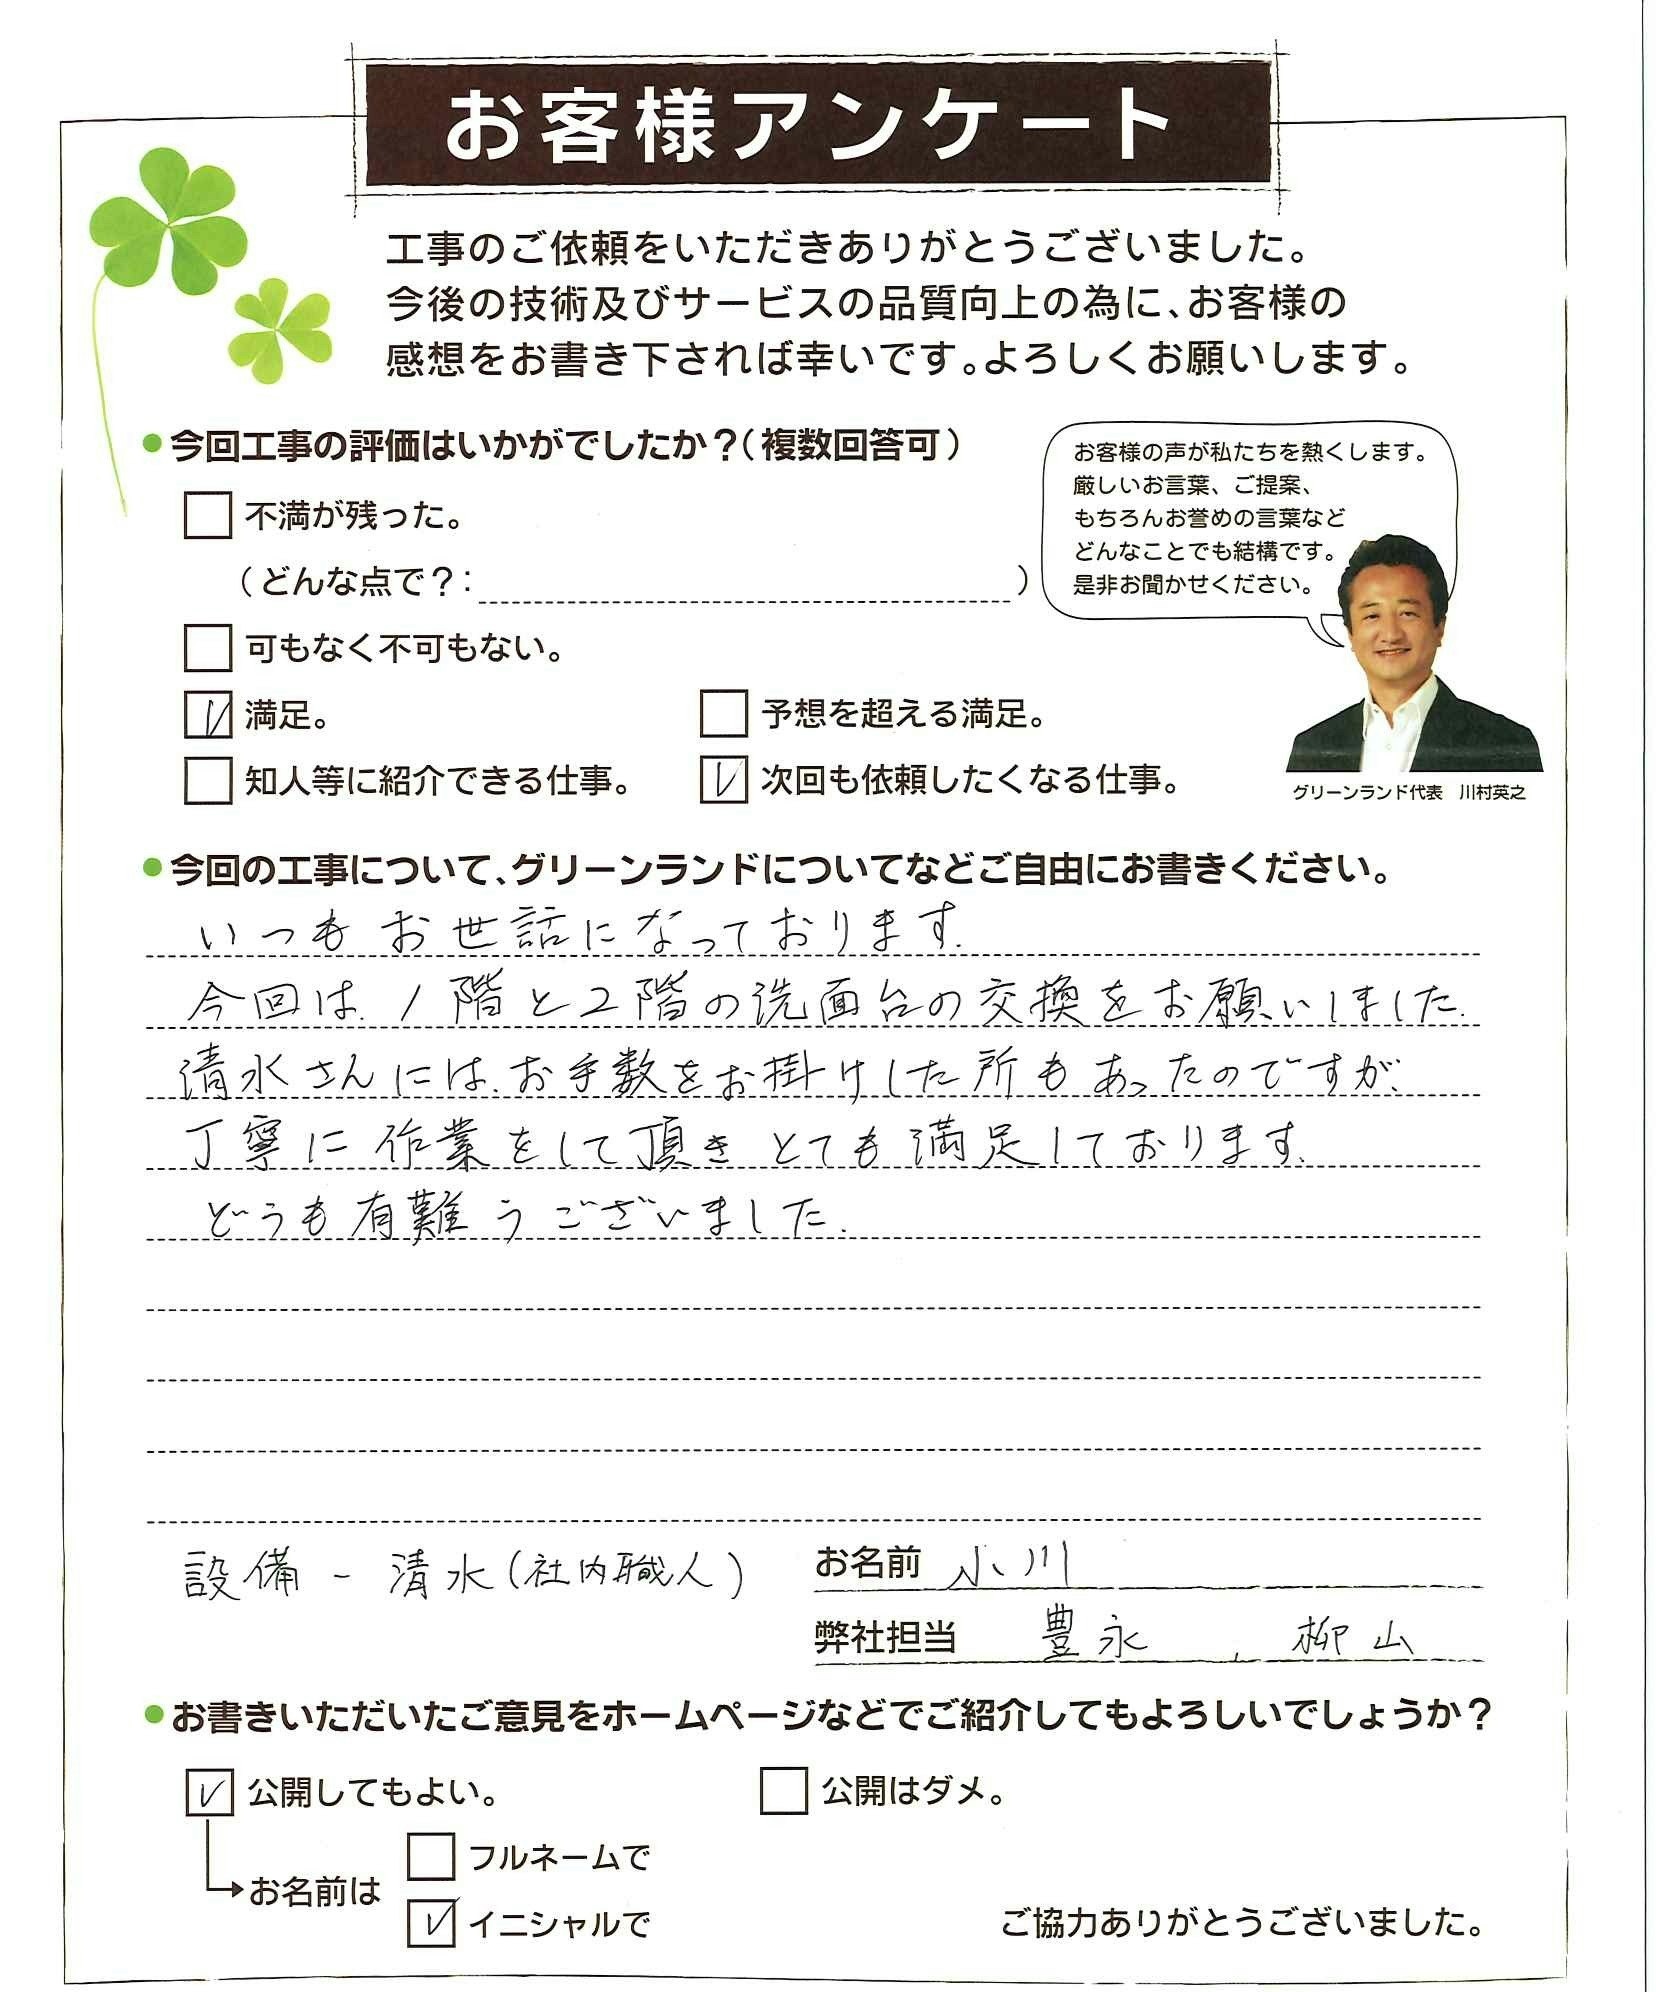 お客様アンケート
工事のご依頼をいただきありがとうございました。
今後の技術及びサービスの品質向上の為に、お客様の
感想をお書き下されば幸いです。よろしくお願いします。
●今回工事の評価はいかがでしたか？（複数回答可）
不満が残った。
（どんな点で？：　）
可もなく不可もない。
満足。
予想を超える満足。
知人等に紹介できる仕事。
次回も依頼したくなる仕事。
お客様の声が私たちを熱くします。
厳しいお言葉、ご提案、
もちろんお誉めの言葉など
どんなことでも結構です。
是非お聞かせください。
グリーンランド代表　川村英之
●今回の工事について、グリーンランドについてなどご自由にお書きください。
いつもお世話になっております.
今回は、1階と2階の洗面台の交換をお願いしました.
清水さんには、お手数をお掛けした所もあったのですが、
丁寧に作業をして頂きとても満足しております.
どうも有難うございました.
設備 - 清水(社内職人)
お名前 小川
弊社担当 豊永、柳山
●お書きいただいたご意見をホームページなどでご紹介してもよろしいでしょうか？
公開してもよい。
公開はダメ。
お名前は
フルネームで
イニシャルで
ご協力ありがとうございました。